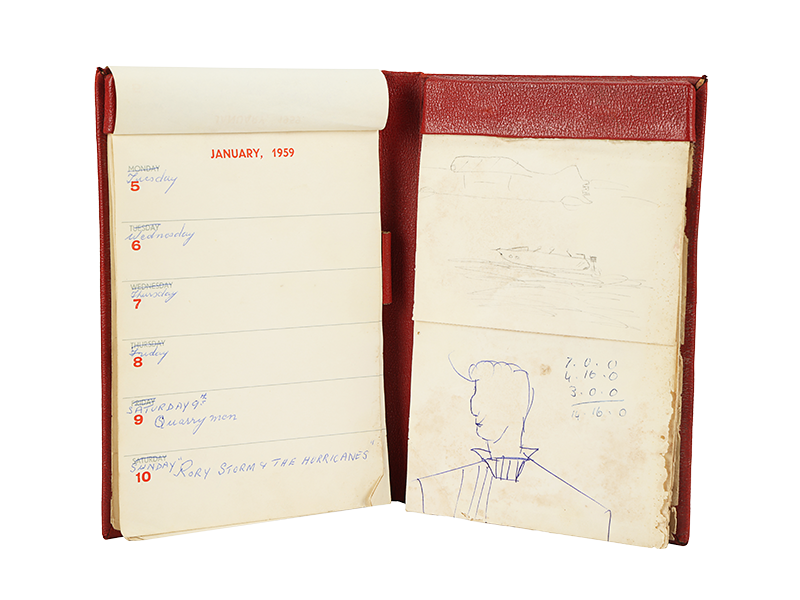 JANUARY, 1959
MONDAY
Tuesday
5
TUESDAY
Wednesday
6
WEDNESDAY
Thursday
7
THURSDAY
Friday
8
FRIDAY
SATURDAY 9th
9 Quarry men
SATURDAY
SUNDAY "RORY STORM & THE HURRICANES"
10
7. 0. 0
4. 16. 0
3. 0. 0
14. 16. 0